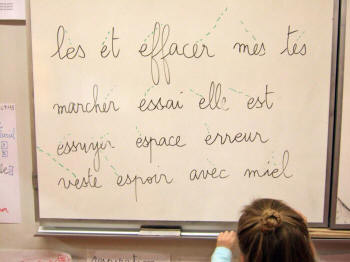 les et effacer mes tes
marcher essai elle est
essuyer espace erreur
veste espoir avec miel